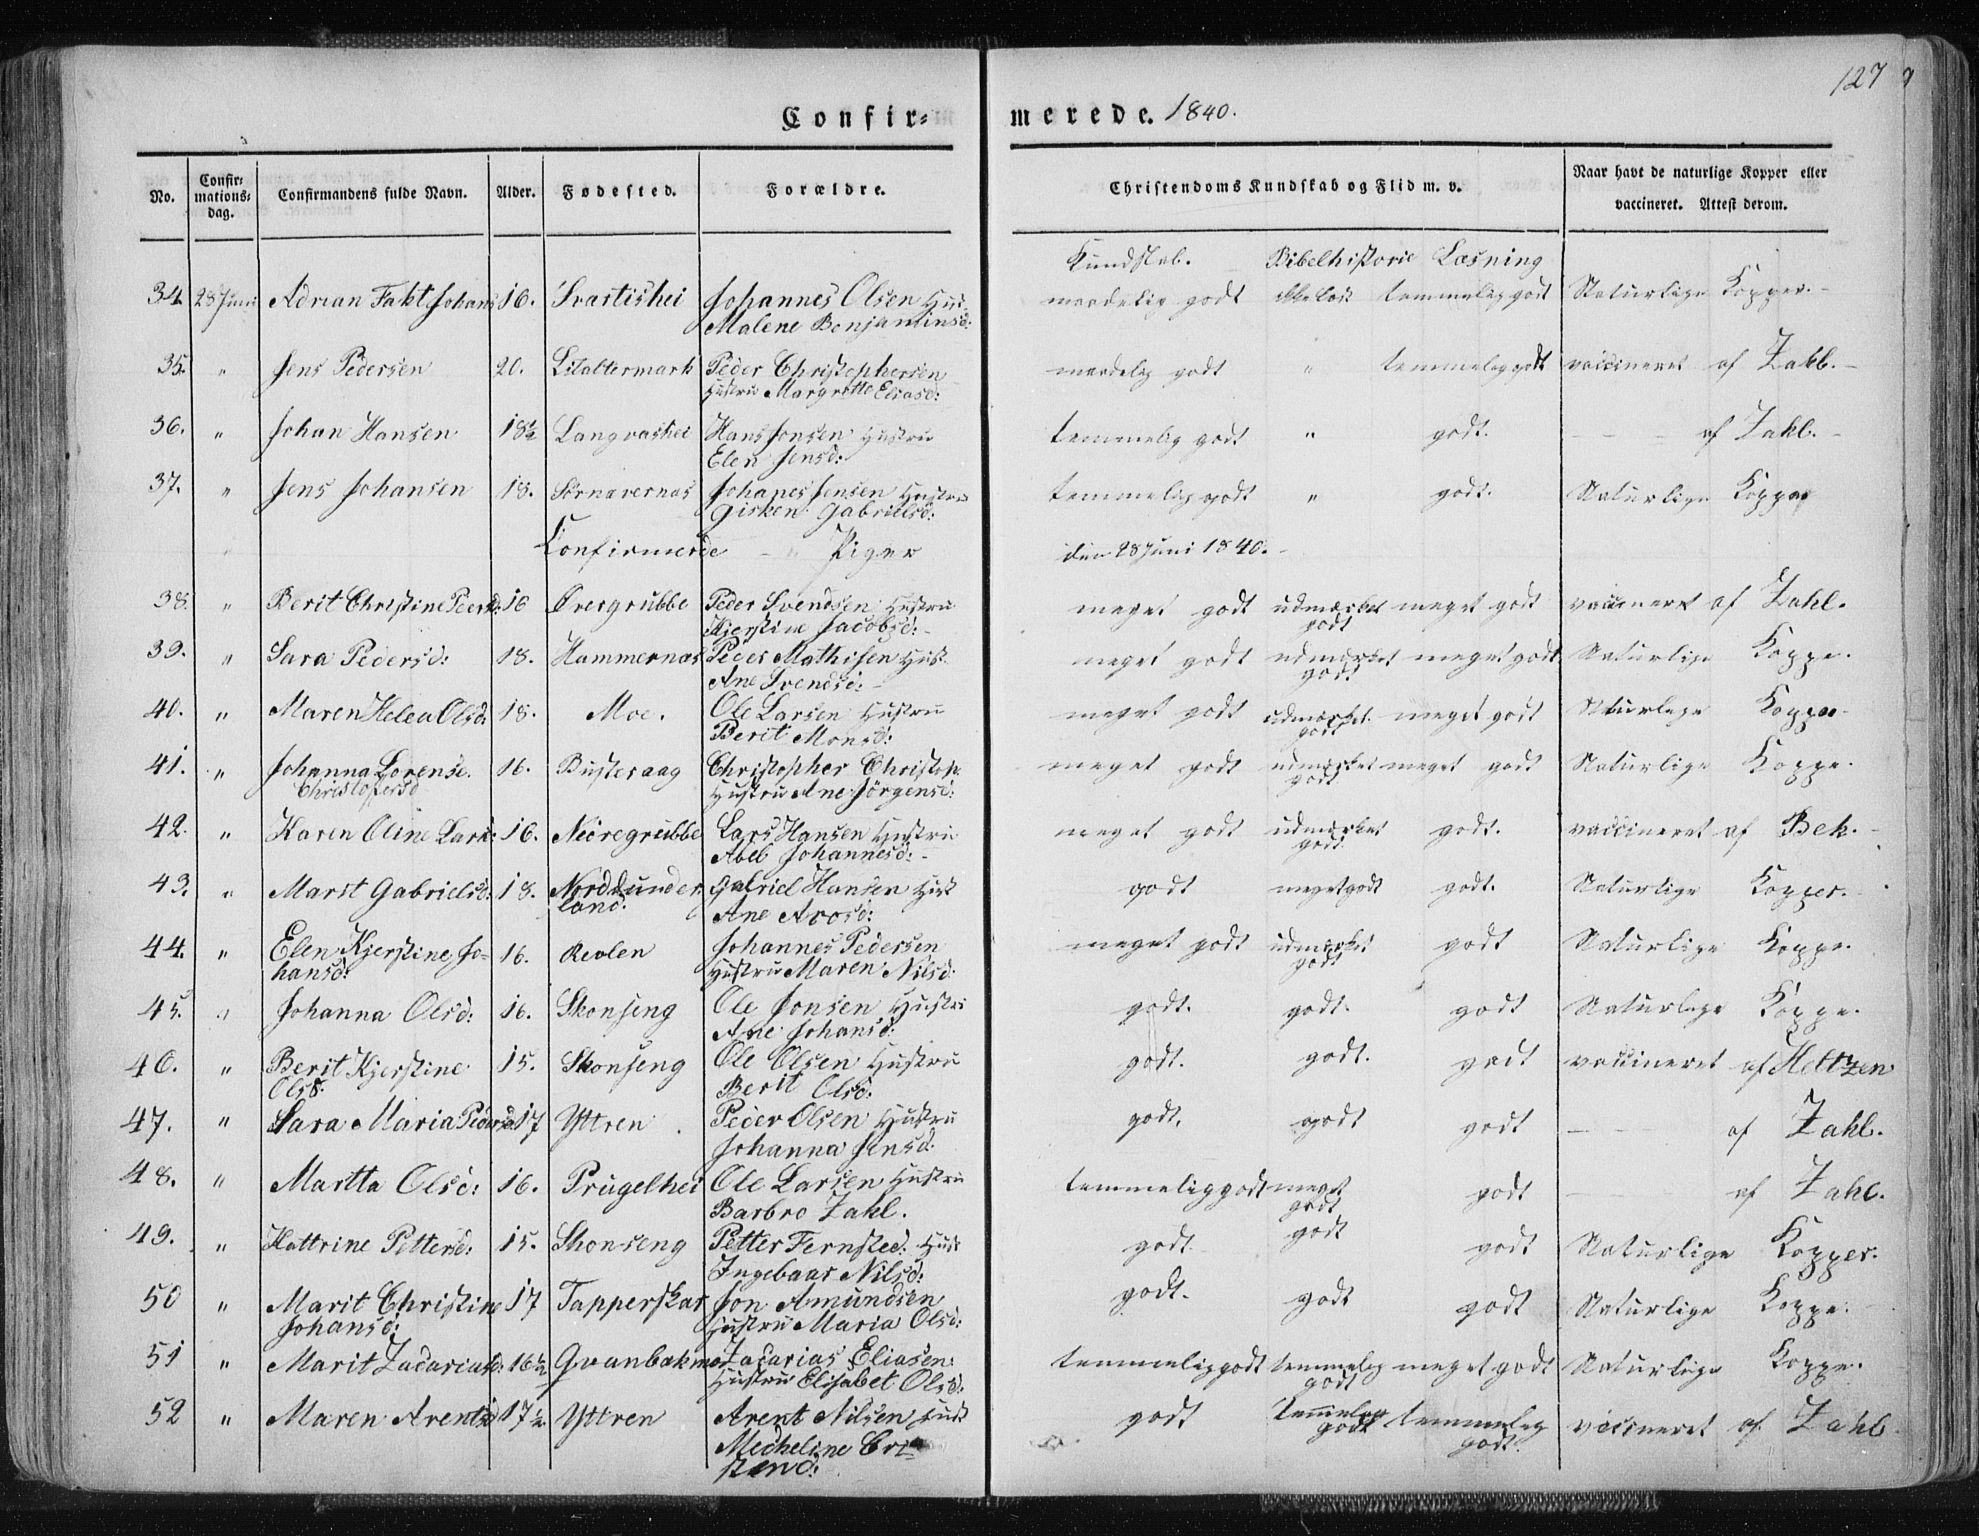 127
Confir=
merede. 1840.
No. Confir= mations= dag. Confirmandens fulde Navn. Alder. Fødested. Forældre. Christendoms Kundskab og Flid m. v. Naar havt de naturlige Kopper eller vaccineret. Attest derom.
Kundskab. Bibelhistorie Læsning
34. 28 Juni Adrian Johans 16. Svartishei Johannes Olsen Hus: maadelig godt ikke læst temmelig godt Naturlige Kopper.
Malene Benjaminsd:
35. " Jens Pedersen 20. Peder Christophersen maadelig godt " temmelig godt vaccineret af Zahl.
Hustru Margrette Eliasd:
36. " Johan Hansen 18½ Langvashei Hans Jonsen Hustru temmelig godt " godt. – – – af Zahl.
Elen Jensd:
37. " Jens Johansen 18. Johanes Jensen Hustru temmelig godt " godt. Naturlige Kopper
Gisken Gabrielsd:
" Confirmerede – " Piger den 28 Juni 1840.
38. " Berit Christine Peersd: 16 Øvergrubbe Peder Svendsen Hustru meget godt udmærket godt meget godt vaccineret af Zahl.
Kjerstine Jacobsd:
39. " Sara Pedersd: 18. Hammernæs Peder Mathisen Hust. meget godt udmærket godt meget godt Naturlige Koppe.
Ane Svendsd:
40. " Maren Helea Olsd. 18. Moe. Ole Larsen Hustru meget godt udmærket godt meget godt Naturlige Koppe
Berit Monsd:
41. " Johanna Lorense. 16. Busteraag Christopher Christop. meget godt udmærket godt meget godt Naturlige Koppe.
Christofersd Hustru Ane Jörgensd:
42. " Karen Oline Larsd: 16. Nedregrubbe Lars Hansen Hustru meget godt udmærket godt godt. vaccineret af Bek.
Abel Johannesd:
43. " Marit Gabrielsd: 18. Norddunder Gabriel Hansen Hust godt meget godt godt. Naturlige Kopper.
land. Ane Arosd:
44. " Elen Kjerstine Jo= 16. Revlen Johannes Pedersen meget godt udmærket godt godt Naturlige Koppe.
hansd: Hustru Maren Nilsd.
45. " Johanna Olsd: 16. Skonseng Ole Jonsen Hustru godt. godt. godt Naturlige Koppe.
Ane Johansd.
46. " Berit Kjerstine 15. Skonseng Ole Olsen Hustru godt. godt. godt vaccineret af Heltzen
Olsd. Berit Olsd:
47. " Sara Maria Pedersd 17 Yttren Peder Olsen Hustru godt. godt godt – – af Zahl.
Johanna Jensd.
48. " Martta Olsd: 16. Prügelhei Ole Larsen Hustru temmelig godt meget godt godt – – af Zahl.
Barbro Zahl.
49. " Kattrine Pettersd: 15. Skonseng Petter Fernsted: Hust godt godt godt Naturlige Kopper.
Ingebaar Nilsd:
50 " Marit Christine 17 Tapperskar Jon Amundsen godt. godt godt Naturlige Koppe.
Johansd: Hustru Maria Olsd:
51 " Marit Zacariasd: 16½ Zacarias Eliasen temmelig godt temmelig godt meget godt Naturlige Koppe.
Hustru Elisabet Olsd:
52 " Maren Arentsd 17½ Yttren Arent Nilsen Hust godt temmelig godt temmelig godt. vaccineret af Zahl
Micheline Cri
stensd: